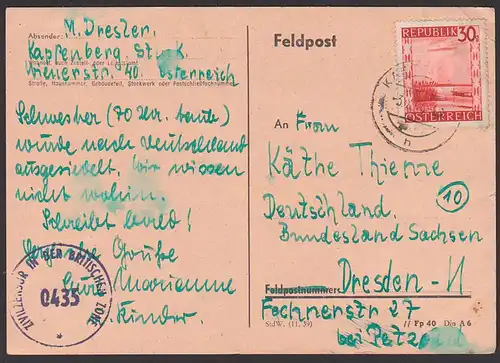 Absender:
M. Dresler.
Kapfenberg. Stmk.
Wienerstr. 40. Österreich
Straße, Hausnummer, Gebäudeteil, Stockwerk oder Postschließfachnummer
Schwester (70 Uhr. heute)
wurde nach Deutschland
ausgesiedelt. Wir wissen
nicht wohin.
Schreibet bald!
Grüße
Eure Marianne
Kinder.
ZIVILZENSUR IN DER BRITISCHEN ZONE
0435
Feldpost
REPUBLIK 30g
ÖSTERREICH
An Frau
Käthe Thieme
10
Deutschland.
Bundesland Sachsen
Feldpostnummer: Dresden-N
Fechnerstr 27
bei
StdW. (11. 39) // Fp 40 Din A 6